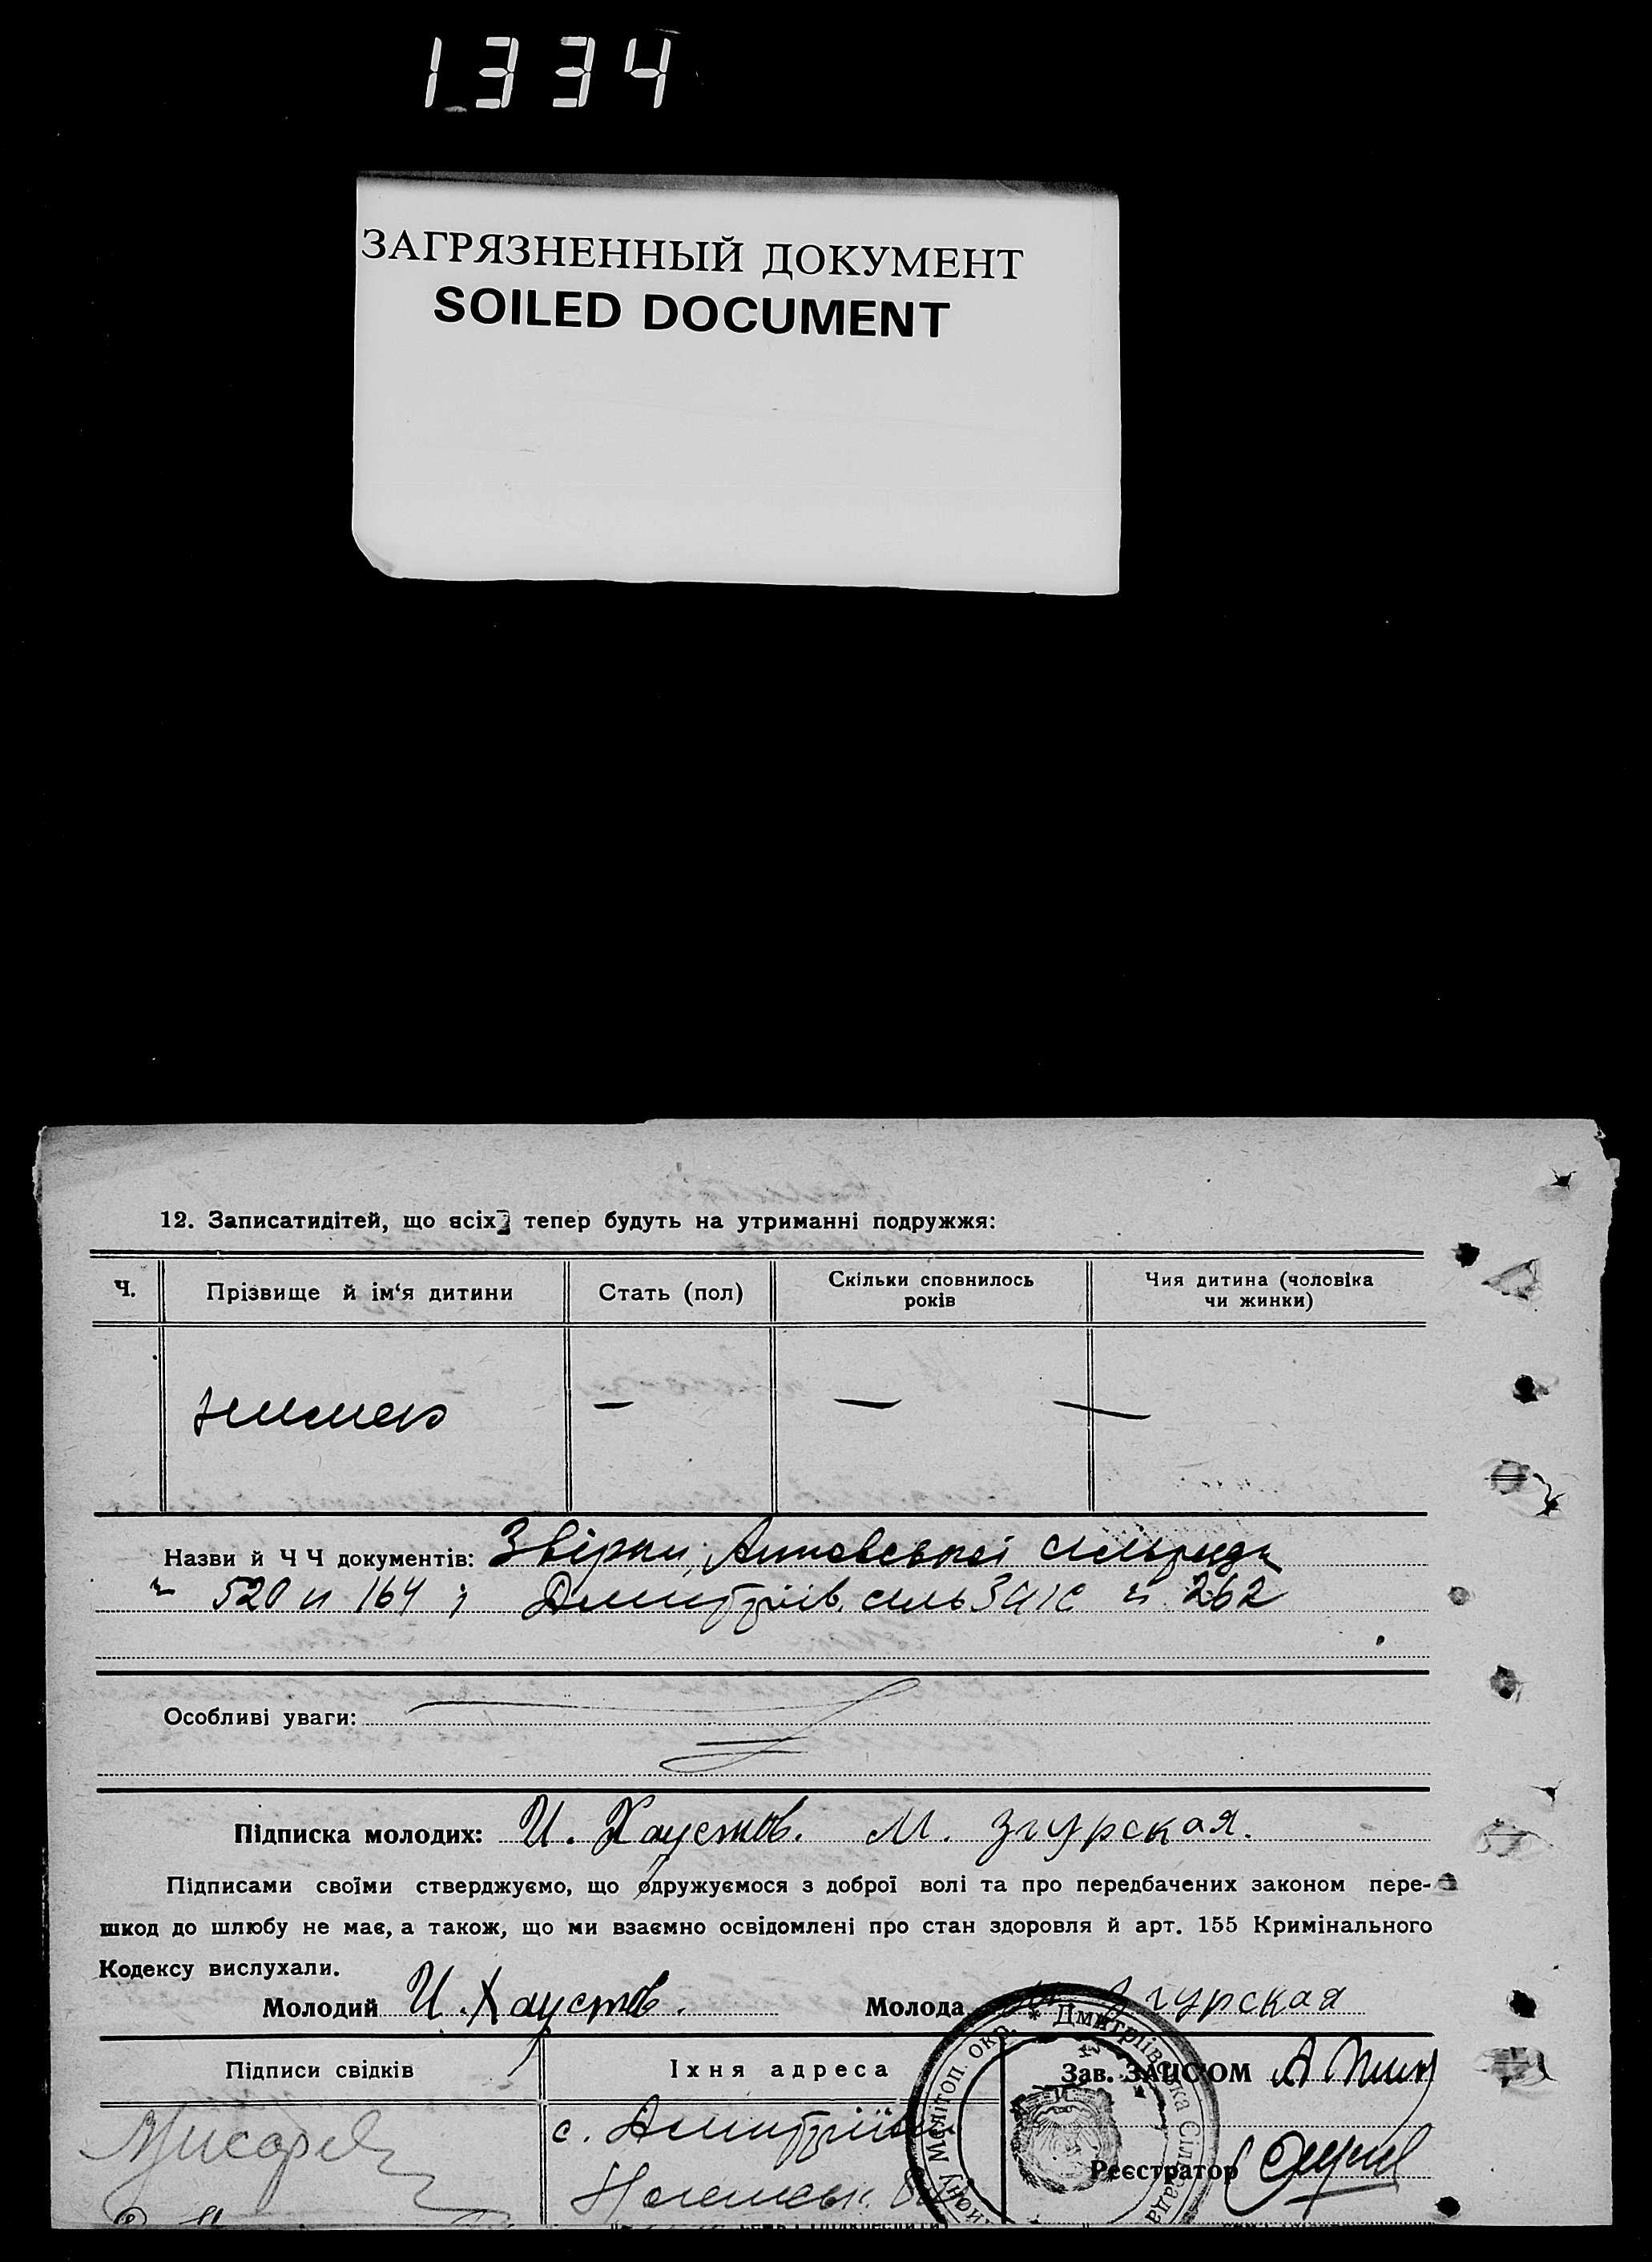 1334
ЗАГРЯЗНЕННЫЙ ДОКУМЕНТ
SOILED DOCUMENT
12. Записатидітей, що всіх тепер будуть на утриманні подружжя:
Ч. Прізвище й ім‘я дитини Стать (пол) Скільки сповнилось років Чия дитина (чоловіка чи жинки)
немає — — —
Назви й Ч Ч документів: Звірки
520 и 164 262
Особливі уваги:
Підписка молодих: И. Хаустов. М. Згурская.
Підписами своїми стверджуємо, що одружуємося з доброї волі та про передбачених законом пере-
шкод до шлюбу не має, а також, що ми взаємно освідомлені про стан здоровля й арт. 155 Кримінального
Кодексу вислухали.
Молодий И. Хаустов. Молода М. Згурская
Підписи свідків Їхня адреса Зав. ЗАЦСОМ
с.
Реєстратор
* Дмитріївська Сільрада
Мелітоп. окр.